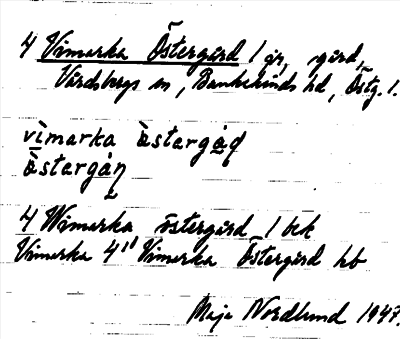 4 Vimarka Östergård 1 gr, gård,
Vårdsbergs sn, Bankekinds hd, Östg. l.
vìmarka àstergǻɖ
àstergåɳ
4 Wimarka östergård 1 bek
Vimarka 4" Vimarka Östergård hb
Maja Nordlund 1947.